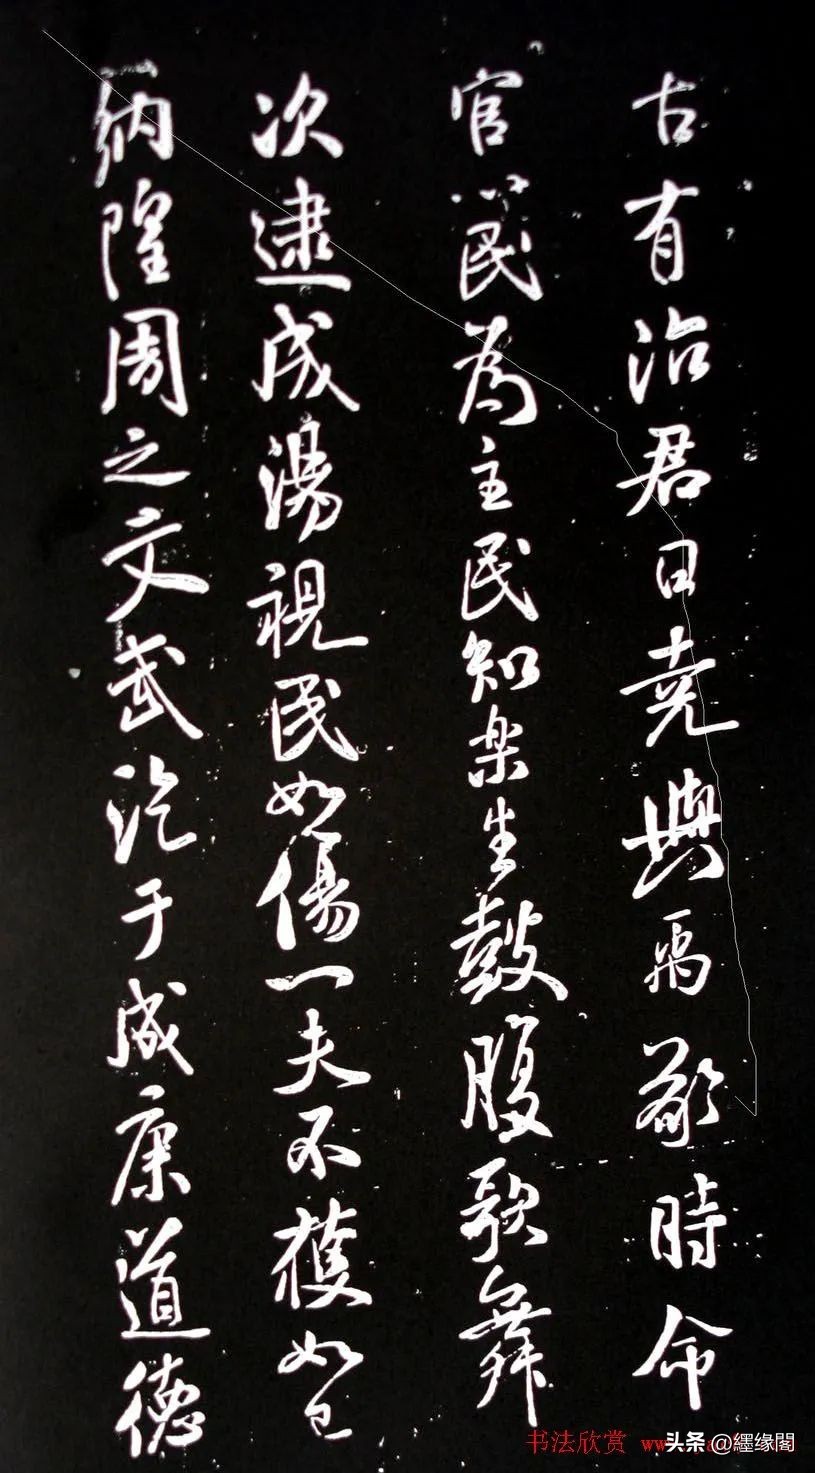 古有治君曰堯與禹敬時命
官以民為主民知樂生鼓腹歌舞
次逮成湯視民如傷一夫不獲如己
納隍周之文武迄于成康道德
书法欣赏 ww
头条 @纆缘閣